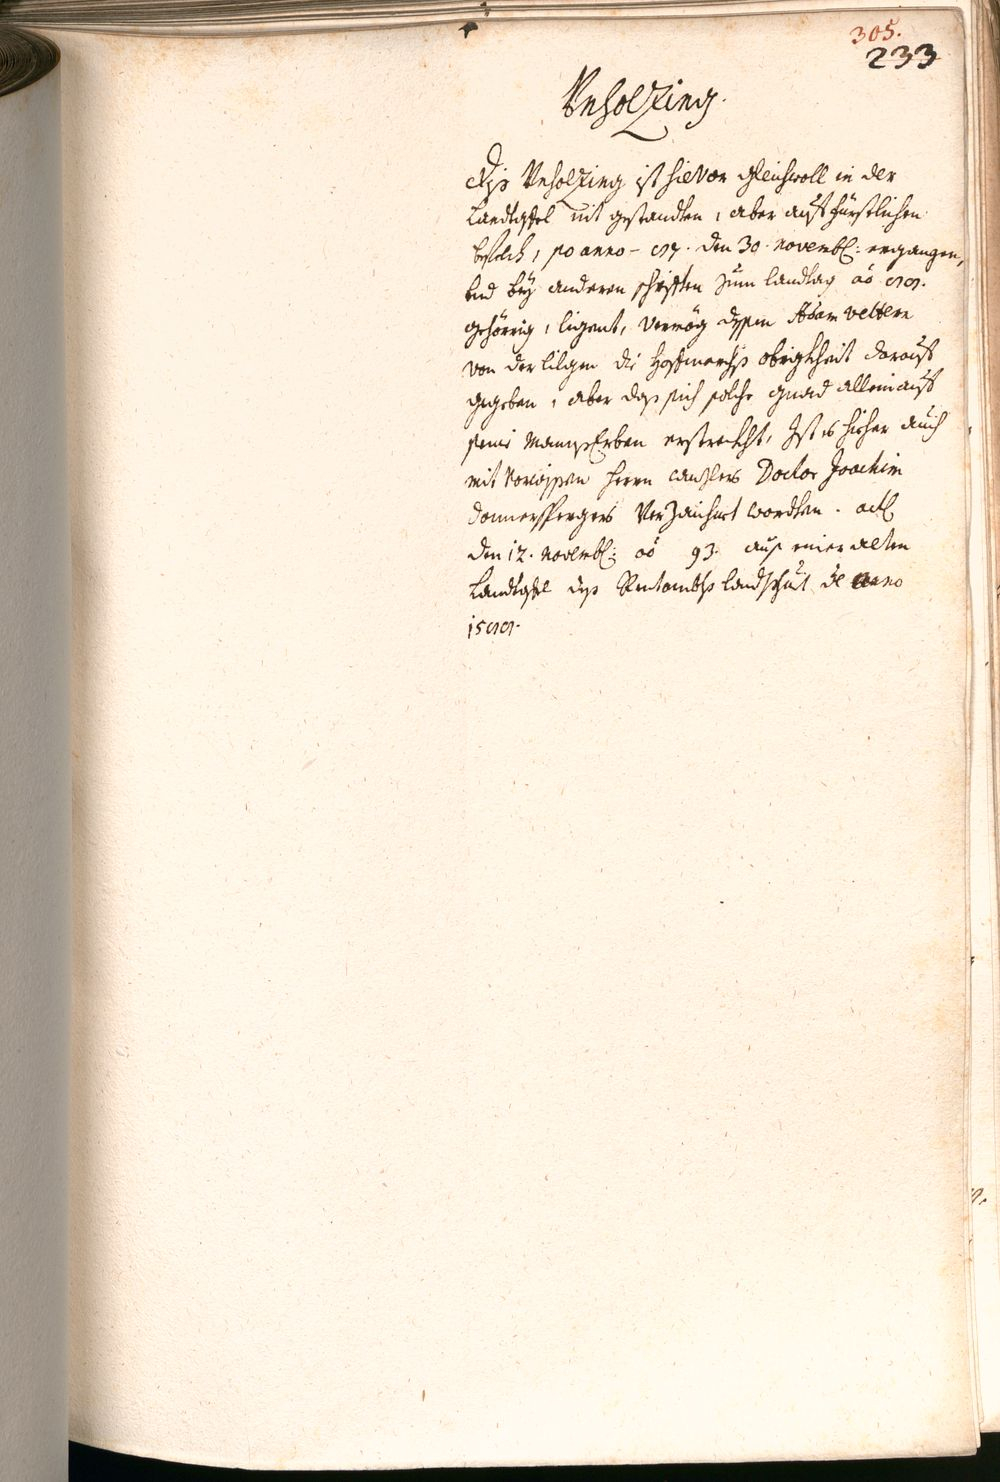 305.
233
Unholzing.
Dis Unholzing ist hievor gleichwoll in der
Landtafel nit gestandten, aber auf Fürstlichen
befelch, so anno - den 30. Novemb: ergangen,
und bey anderen schrifften zum landtag ao
gehörrig, ligent, vermög dessen Adam vettern
von der Lilgen die hoffmarchs obrigkheit darauf
gegeben, aber das sich solche gnad allein auf
seine MannsErben erstreckht, Ist es hieher auch
mit Vorwissen Herrn Canzlers Doctor Joachim
Donnerspergers Verzaichnet wordten. act
den 12. Novemb: ao 93. aus einer alten
Landtafel des Rentambts Landshuet de anno